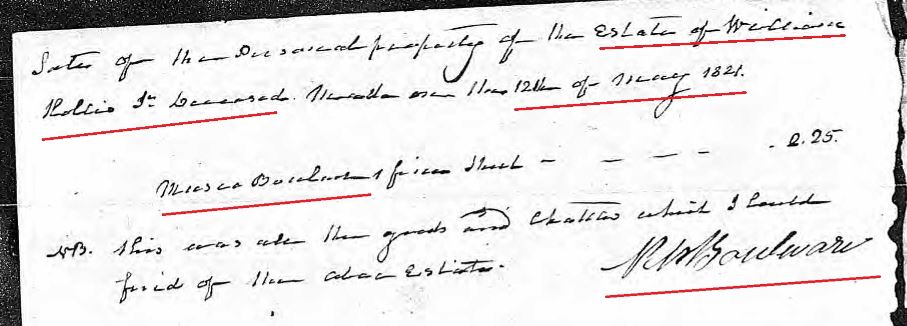 Sales of the Deceased property of the Estate of William
Hollis Jr Deceased. on the 12th of May 1821.
Musco Boulware 1 – – – – . 2.25.
NB. this was all the goods and Chattles which I Could
find of the Estate.
Boulware